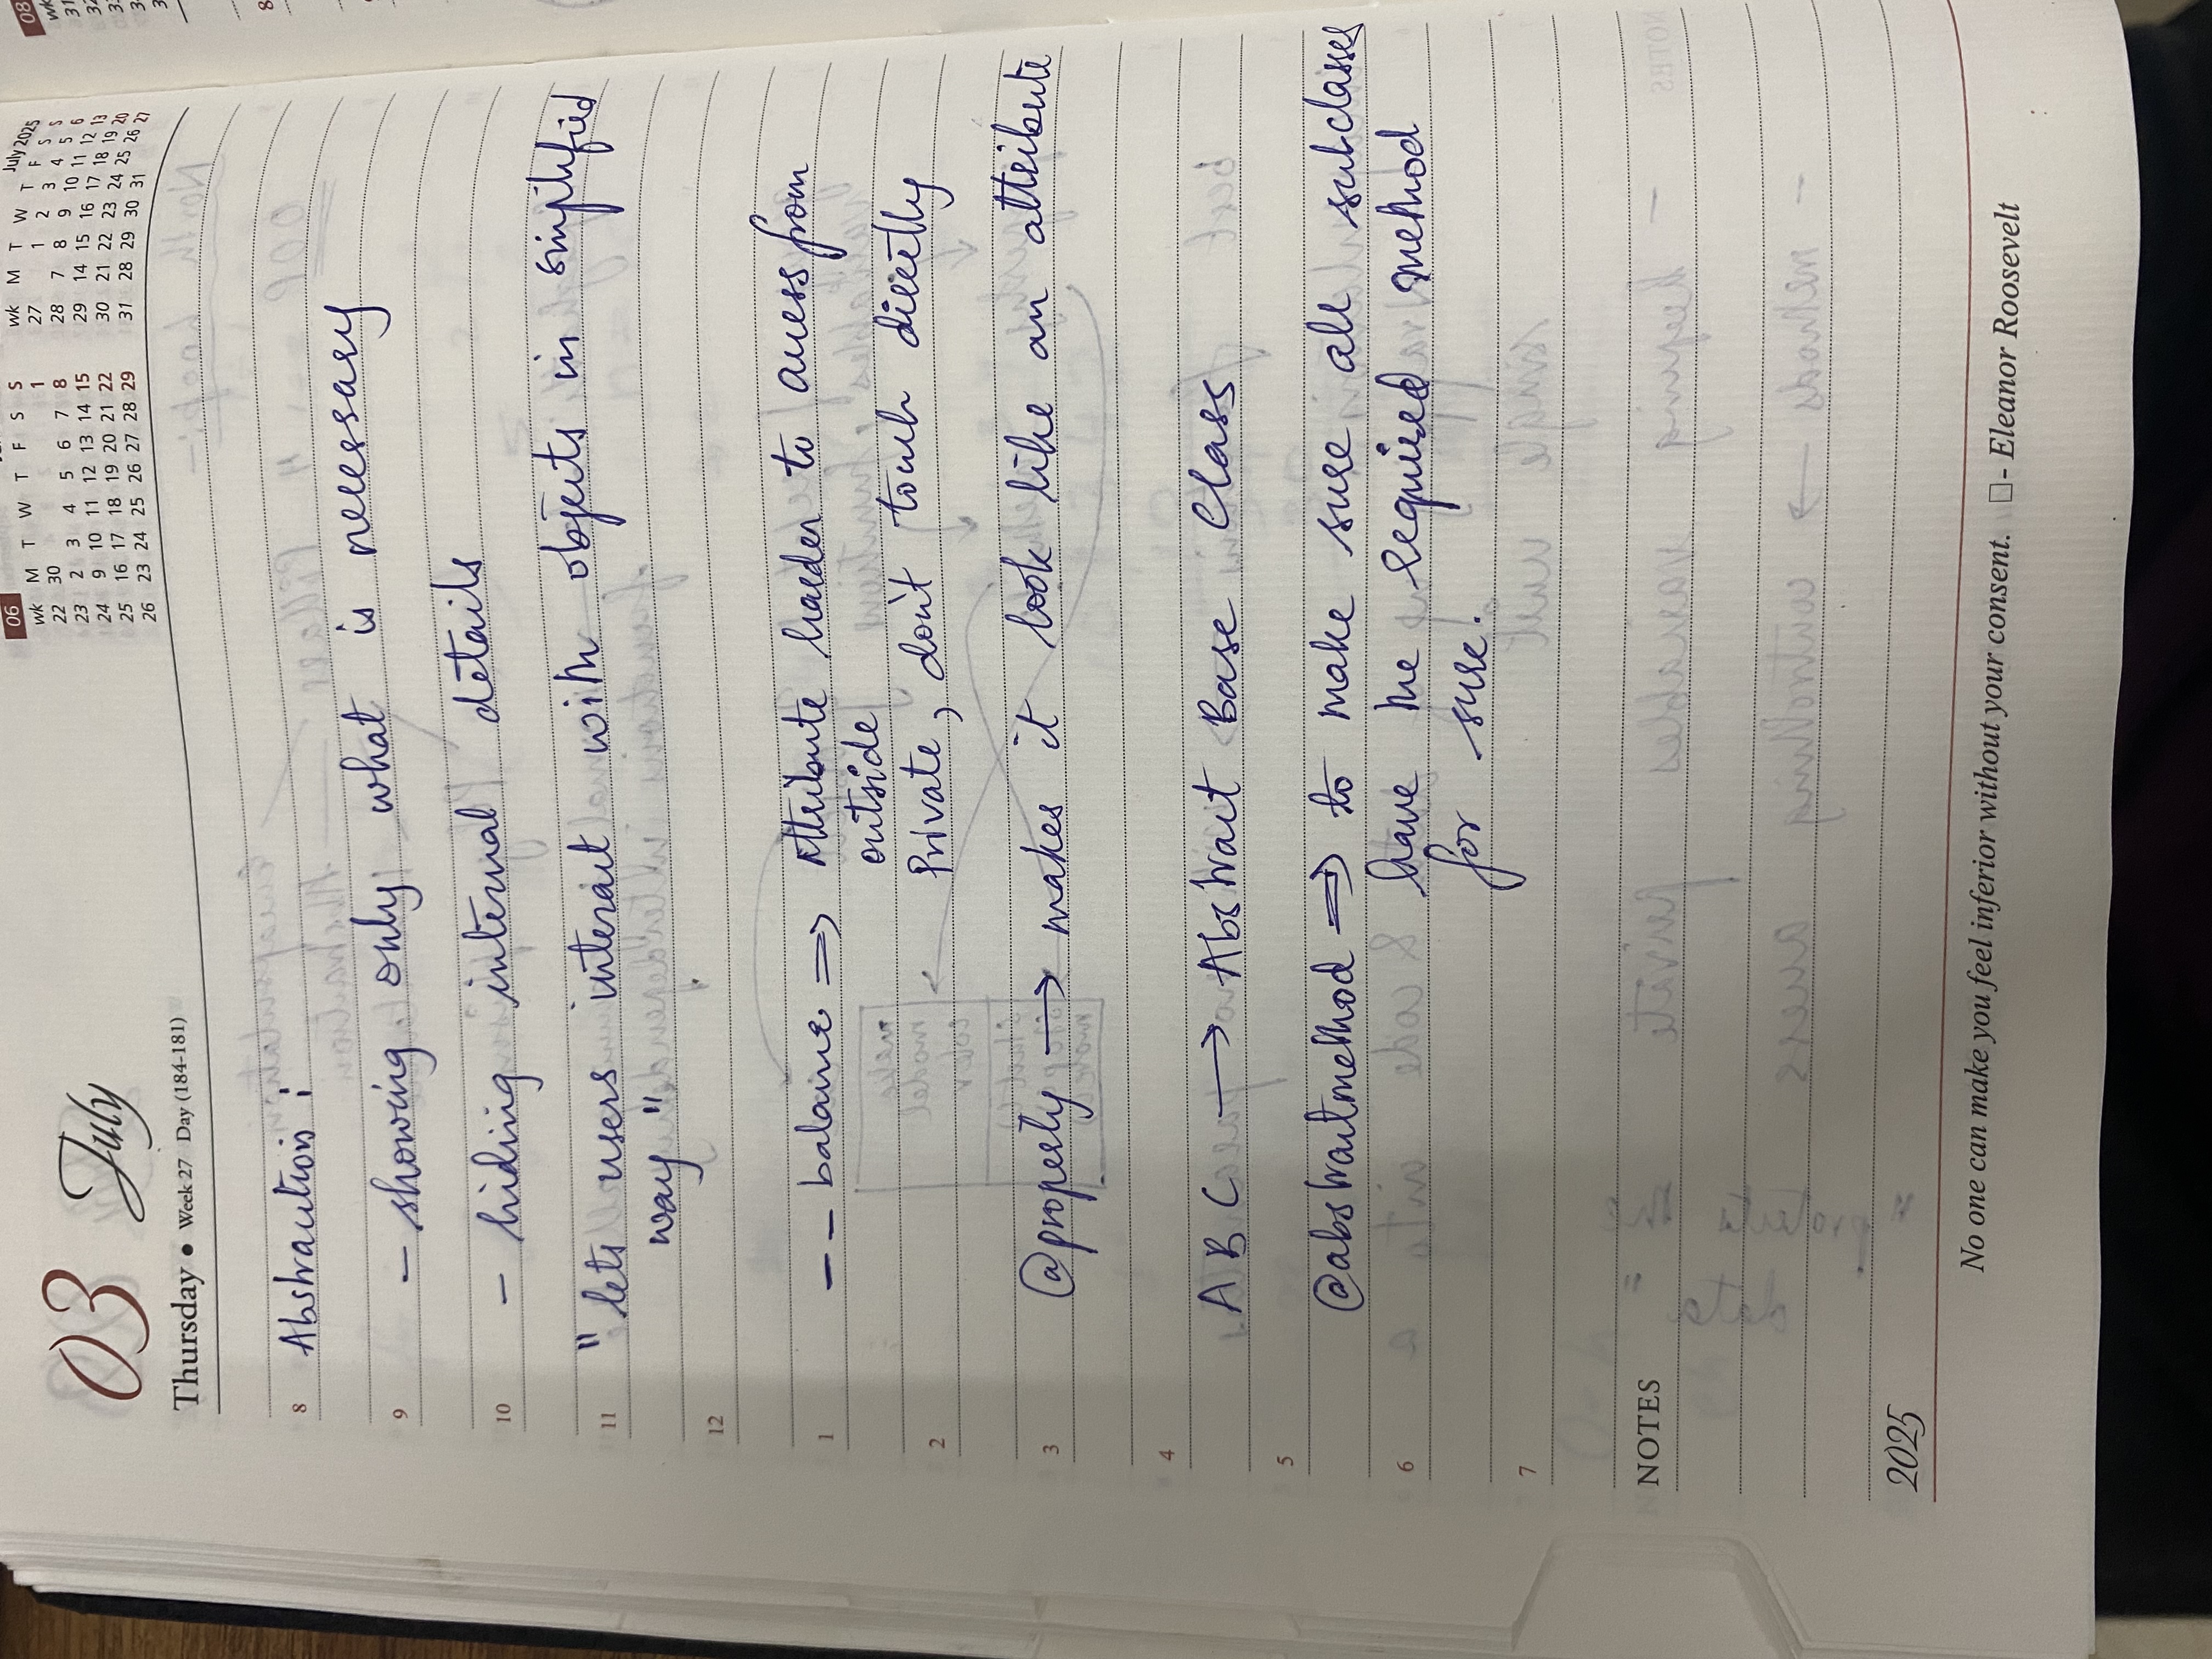 03 July
Thursday • Week 27 Day (184-181)
06
wk M T W T F S S
22 30 1
23 2 3 4 5 6 7 8
24 9 10 11 12 13 14 15
25 16 17 18 19 20 21 22
26 23 24 25 26 27 28 29
July 2025
wk M T W T F S S
27 1 2 3 4 5 6
28 7 8 9 10 11 12 13
29 14 15 16 17 18 19 20
30 21 22 23 24 25 26 27
31 28 29 30 31
08
8 Abstraction :
9 - showing only what is necessary
10 - hiding internal details
11 "lets users interact with objects in simplified
way"
12
1 __balance => Attribute harder to access from
outside
2 Private, don't touch directly
3 @property → makes it look like an attribute
4
ABC → Abstract Base Class
5
@abstractmethod => to make sure all subclasses
6 have the required method
for sure.
7
NOTES
2025
No one can make you feel inferior without your consent. □- Eleanor Roosevelt